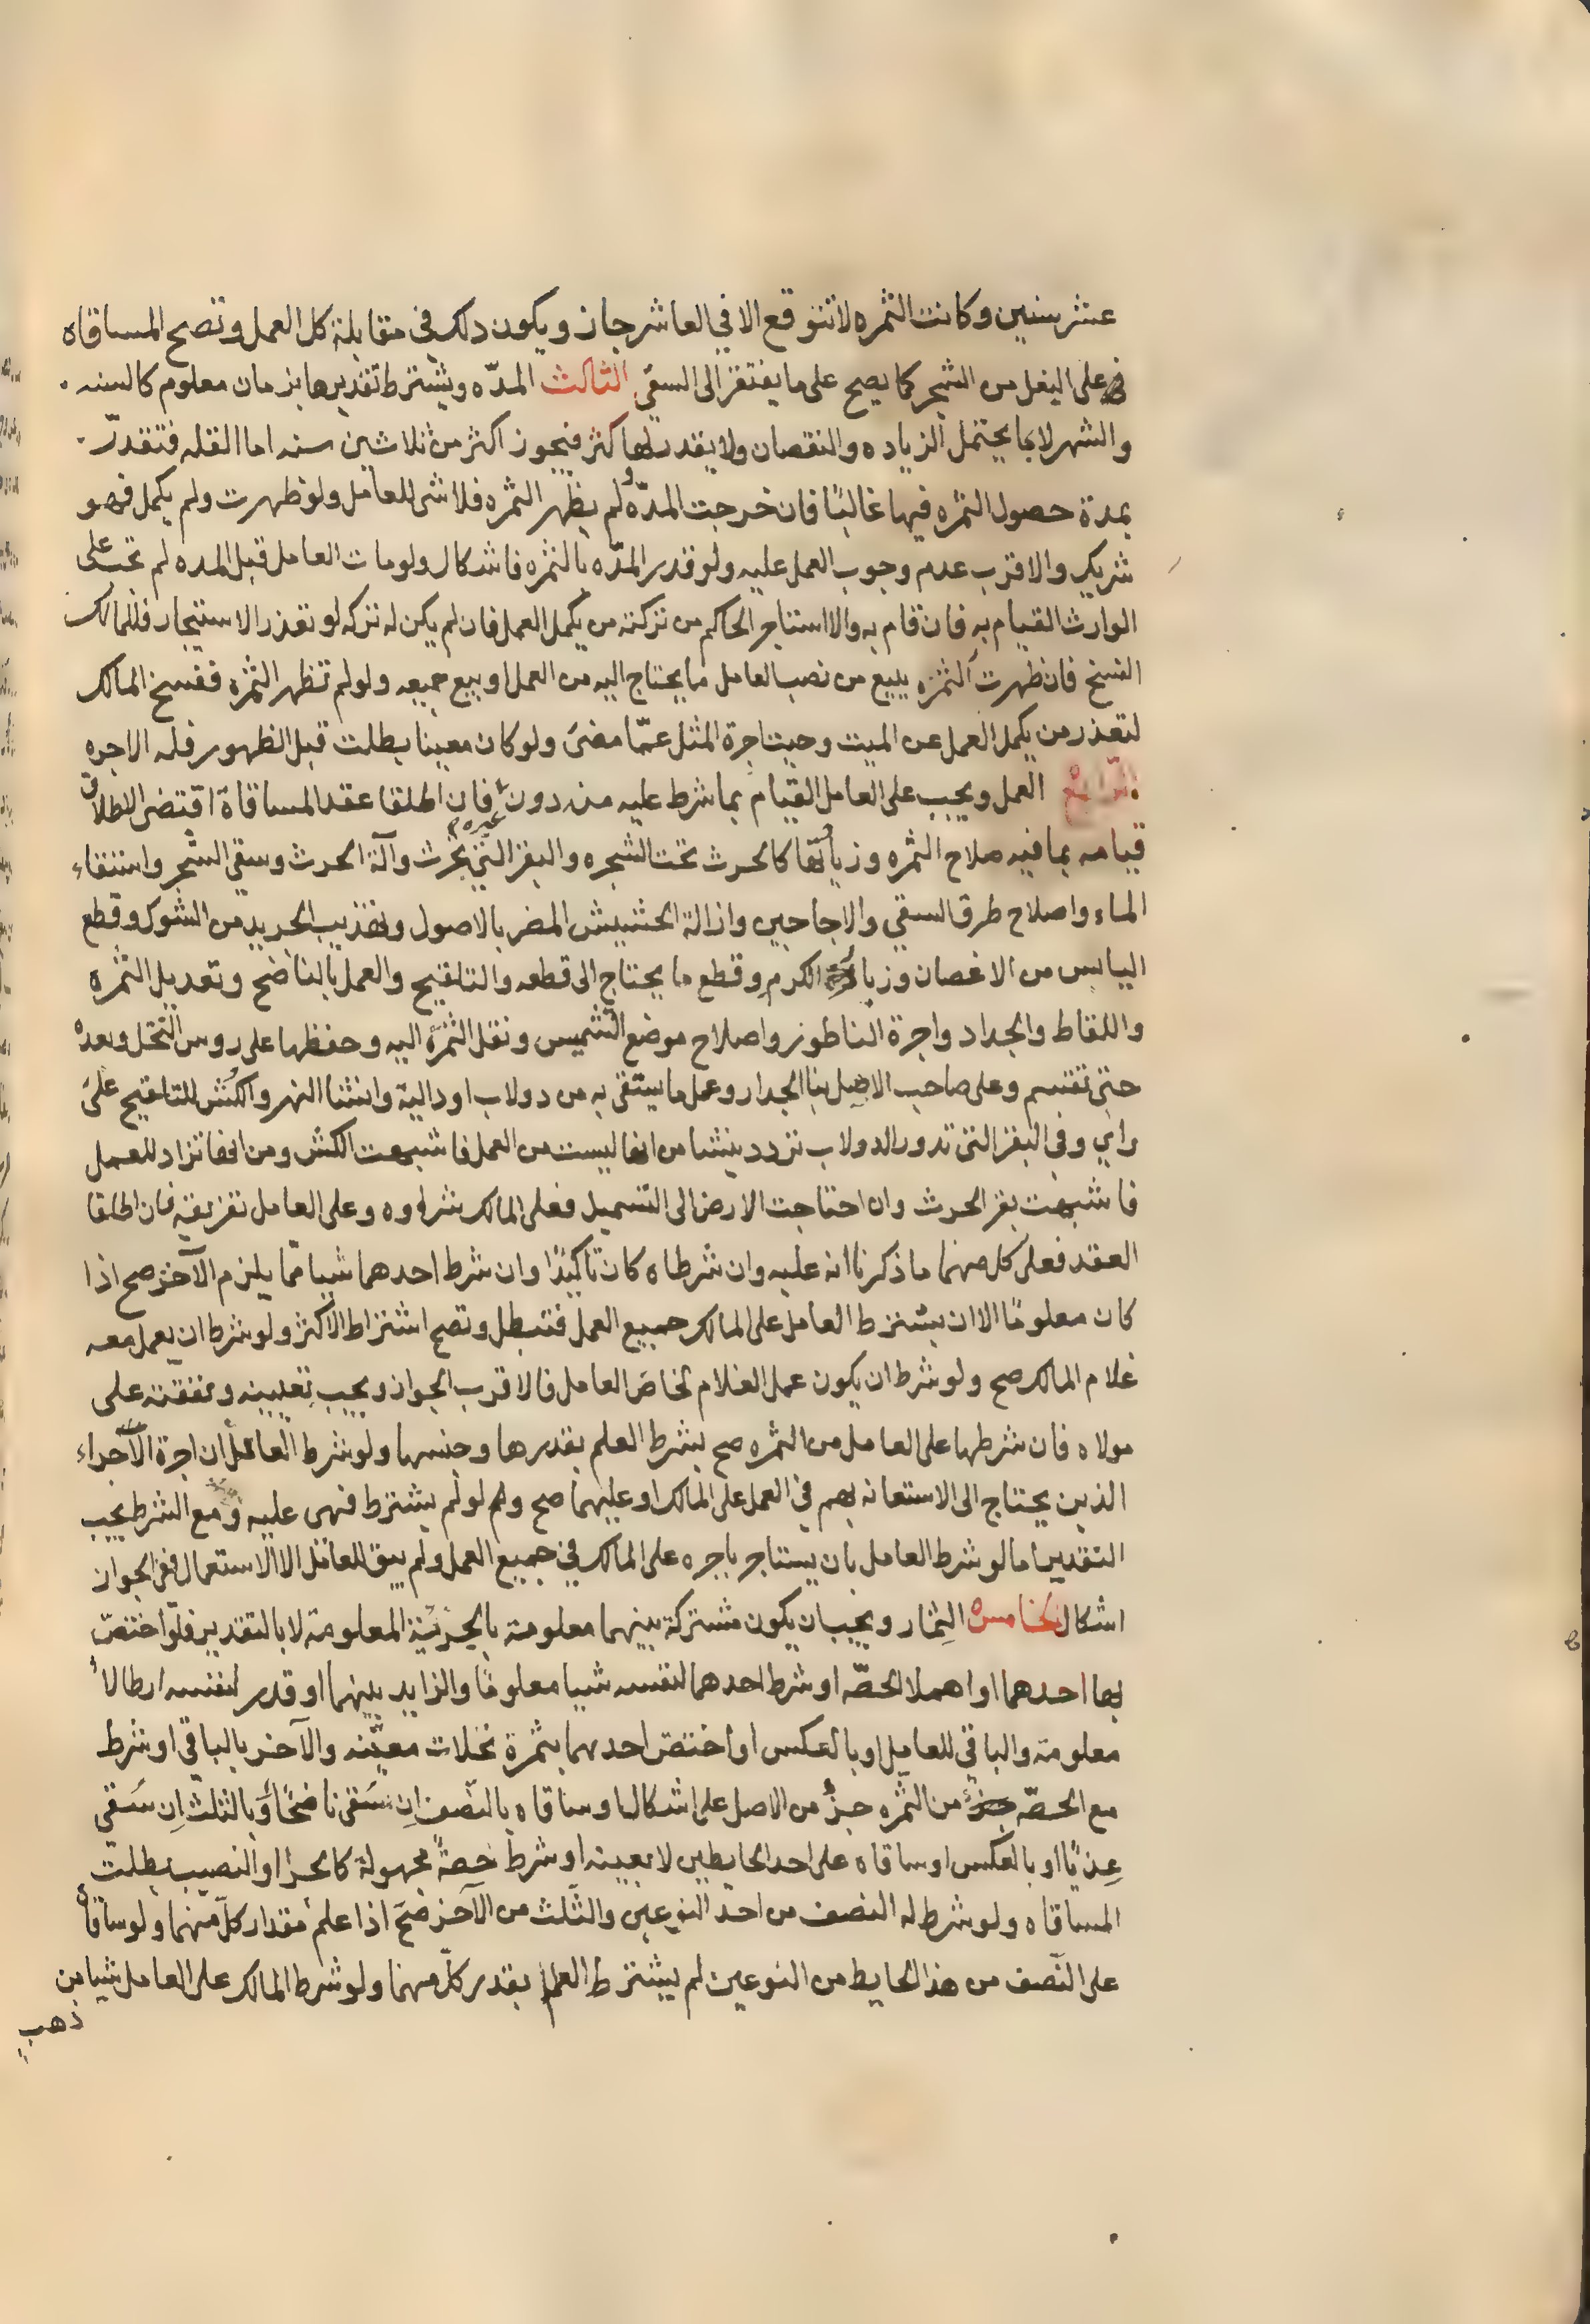 عشر سنين وكانت الثمره لا تتوقع الا في العاشر جاز ويكون ذلك في مقابلة كل العمل وتصح المساقاه
على البعل من الشجر كما يصح على ما يفتقر الى السقى الثالث المدّه ويشترط تقديرها بزمان معلوم كالسنه
والشهر لا بما يحتمل الزياده والنقصان ولا يقدر لها كثر فيجوز اكثر من ثلاثين سنه اما القله فتقدّر
بمدة حصول الثمره فيها غالبًا فان خرجت المدّه ولم يظهر الثمره فلا شى للعامل ولو ظهرت ولم يكمل فهو
شريك والاقرب عدم وجوب العمل عليه ولو قدر المدّه بالثمره فاشكال ولو مات العامل قبل المده لم تجب على
الوارث القيام به فان قام به والا استاجر الحاكم من تركته من يكمل العمل فان لم يكن له تركه او تعذر الاستيجار فللمالك
الفسخ فان ظهرت الثمره يبيع من نصيب العامل ما يحتاج اليه من العمل او بيع جميعه ولو لم تظهر الثمره ففسخ المالك
لتعذر من يكمل العمل عن الميت وجبت اجرة المثل عمّا مضى ولو كان معينا بطلت قبل الظهور فله الاجره
الرّابع العمل ويجب على العامل القيام بما شرط عليه منه دون غيره فان اطلقا عقد المساقاة اقتضى الاطلاق
قيامه بما فيه صلاح الثمره وزيادتها كالحرث تحت الشجره والبقر التى تحرث وآلة الحرث وسقي الشجر واستقاء
الماء واصلاح طرق السقي والاجاجين وازالة الحشيش المضر بالاصول وتهذيب الجريد من الشوك وقطع
اليابس من الاغصان وزبارة الكرم وقطع ما يحتاج الى قطعه والتلقيح والعمل بالناضح وتعديل الثمره
واللقاط والجداد واجرة الناطور واصلاح موضع التشميس ونقل الثمرة اليه وحفظها على روس النخل وبعده
حتى تقتسم وعلى صاحب الاصل بنا الجدار وعمل ما يستقى به من دولاب او دالية وانشا النهر والكش للتلقيح على
راي وفى البقر التى تدور الدولاب تردد ينشا من انها ليست من العمل فاشبهت الكش ومن انها تراد للعمل
فاشبهت بقر الحرث وان احتاجت الارض الى التسميد فعلى المالك شراوه وعلى العامل تفريقه فان اطلقا
العقد فعلى كل منهما ما ذكرنا انه عليه وان شرطاه كان تاكيدًا وان شرط احدهما شيا ممّا يلزم الآخر صح اذا
كان معلومًا الا ان يشترط العامل على المالك جميع العمل فتبطل وتصح اشتراط الاكثر ولو شرط ان يعمل معه
غلام المالك صح ولو شرط ان يكون عمل الغلام لخاصّ العامل فالاقرب الجواز ويجب تعيينه ونفقته على
مولاه فان شرطها على العامل من الثمره صح بشرط العلم بقدرها وجنسها ولو شرط العامل ان اجرة الاجراء
الذين يحتاج الى الاستعانه بهم في العمل على المالك او عليهما صح ولو لم يشترط فهى عليه ومع الشرط يجب
التقدير اما لو شرط العامل بان يستاجر باجره على المالك في جميع العمل ولم يبق للعامل الا الاستعمال ففى الجواز
اشكال الخامس الثمار ويجب ان يكون مشتركة بينهما معلومة بالجزئية المعلومة لا بالتقدير فلو اختصّ
بها احدهما او اهملا الحصّه او شرط احدهما لنفسه شيا معلومًا والزايد بينهما او قدر لنفسه ارطالاً
معلومة والباقي للعامل او بالعكس او اختص احدهما بثمرة نخلات معيّنه والآخر بالباقي او شرط
مع الحصّه من الثمره جزؤ من الاصل على اشكال او ساقاه بالنّصف اِن سَقى ناضحًا وَبالثلث اِن سَقى
عِذيًا او بالعكس او ساقاه على احد الحايطين لا بعينه او شرط حِصةً مجهولة كالجزا والنصيب بطلت
المساقاه ولو شرط له النصف من احد النوعين والثّلث من الآخر صَحّ اذا علم مقدار كلّ منهما ولو ساقاه
على النّصف من هذا الحايط من النوعين لم يشترط العلم بقدر كلّ منهما ولو شرط المالك على العامل شيا من
ذهب